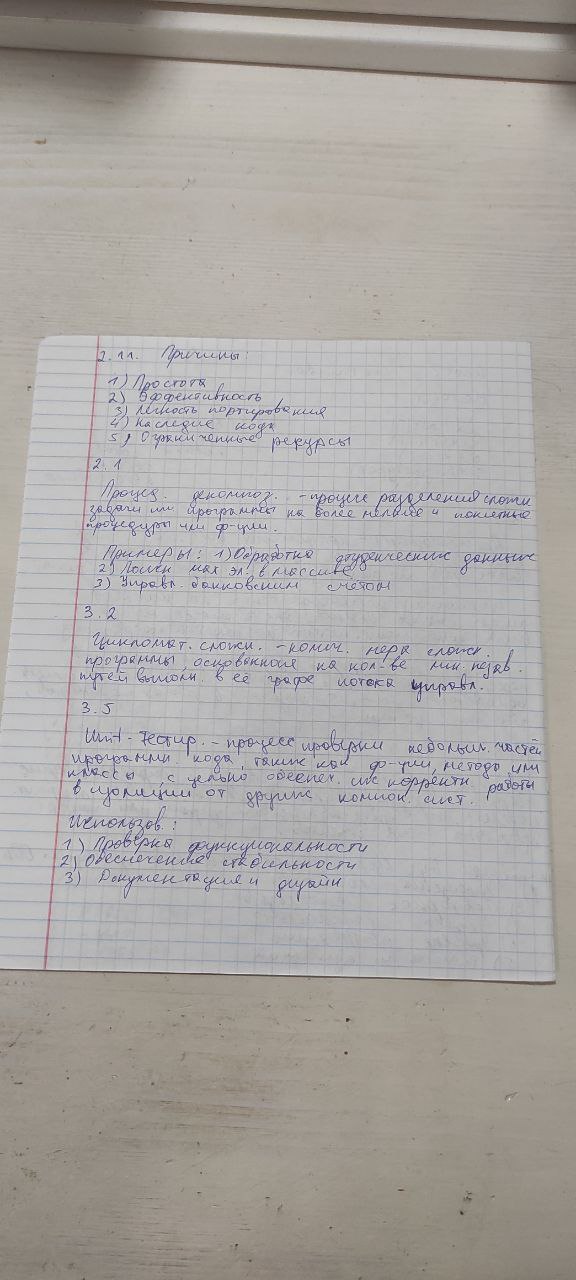 2.11. Причины:
1) Простота
2) Эффективность
3) Легкость портирования
4) Наследие кода
5) Ограниченные рекурсы
2.1
Процед. декомпоз. - процесс разделения сложн
задачи или программы на более мелкие и понятные
процедуры или ф-ции.
Примеры: 1) Обработка студенческих данных
2) Поиск мах эл. в массиве
3) Управл. банковским счётом
3.2
Цикломат. сложн. - колич. мера сложн.
программы, основанная на кол-ве лин. незав.
путей выполн. в её графе потока управл.
3.5
Unit-тестир. - процесс проверки небольш. частей
программн. кода, таких как ф-ции, методы или
классы, с целью обеспеч. их корректн. работы
в изоляции от других компон. сист.
Использов.:
1) Проверка функциональности
2) Обеспечение стабильности
3) Документация и дизайн